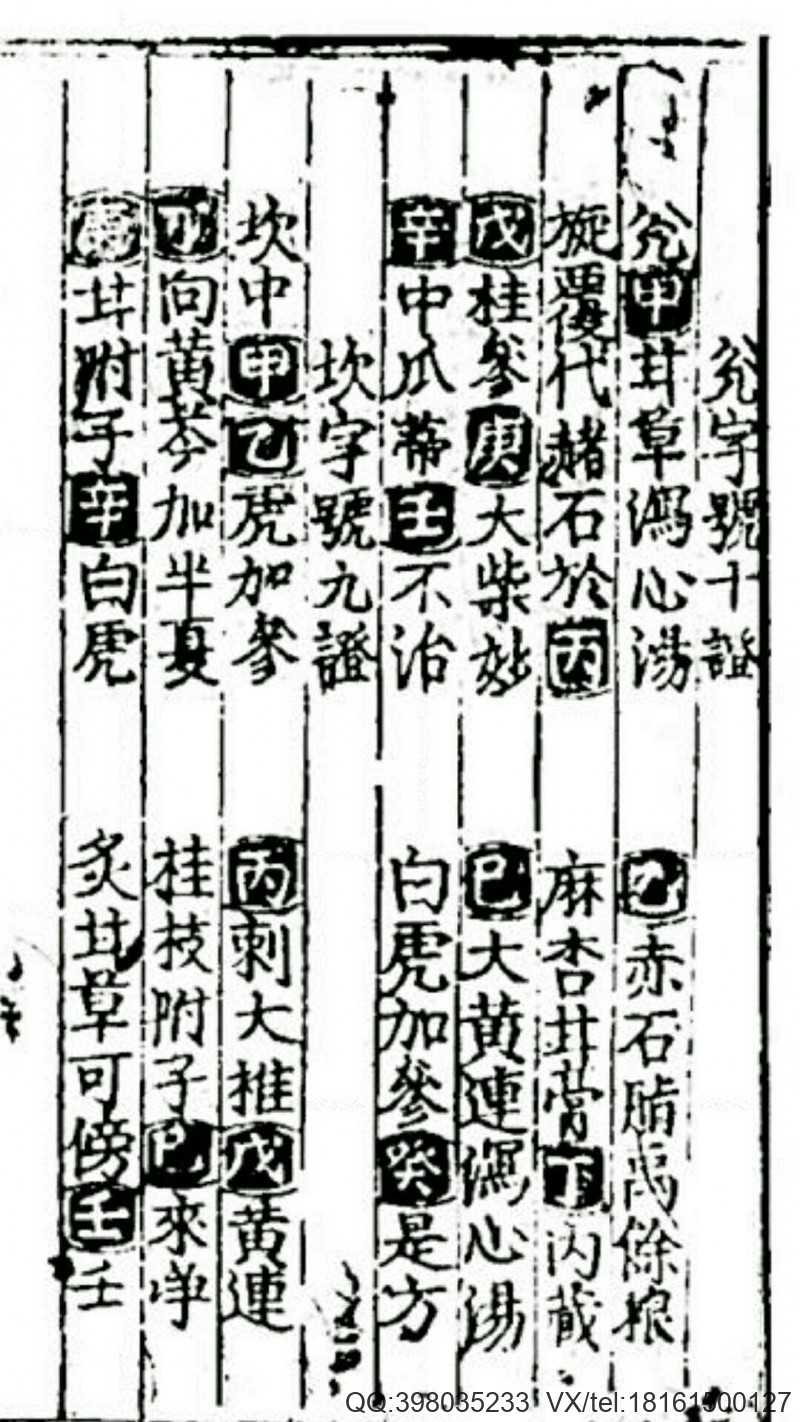 兊字號十證
兊甲甘草瀉心湯 乙赤石脂禹餘粮
旋覆代赭石於丙 麻杏甘膏丁內藏
戊桂參庚大柴妙 己大黃連瀉心湯
辛中瓜蒂壬不治 白虎加參癸是方
坎字號九證
坎中甲乙虎加參 丙刺大推戊黃連
丁向黃芩加半夏 桂枝附子己來
庚甘附子辛白虎 炙甘草可傍壬壬
QQ:398035233 VX/tel:18161500127